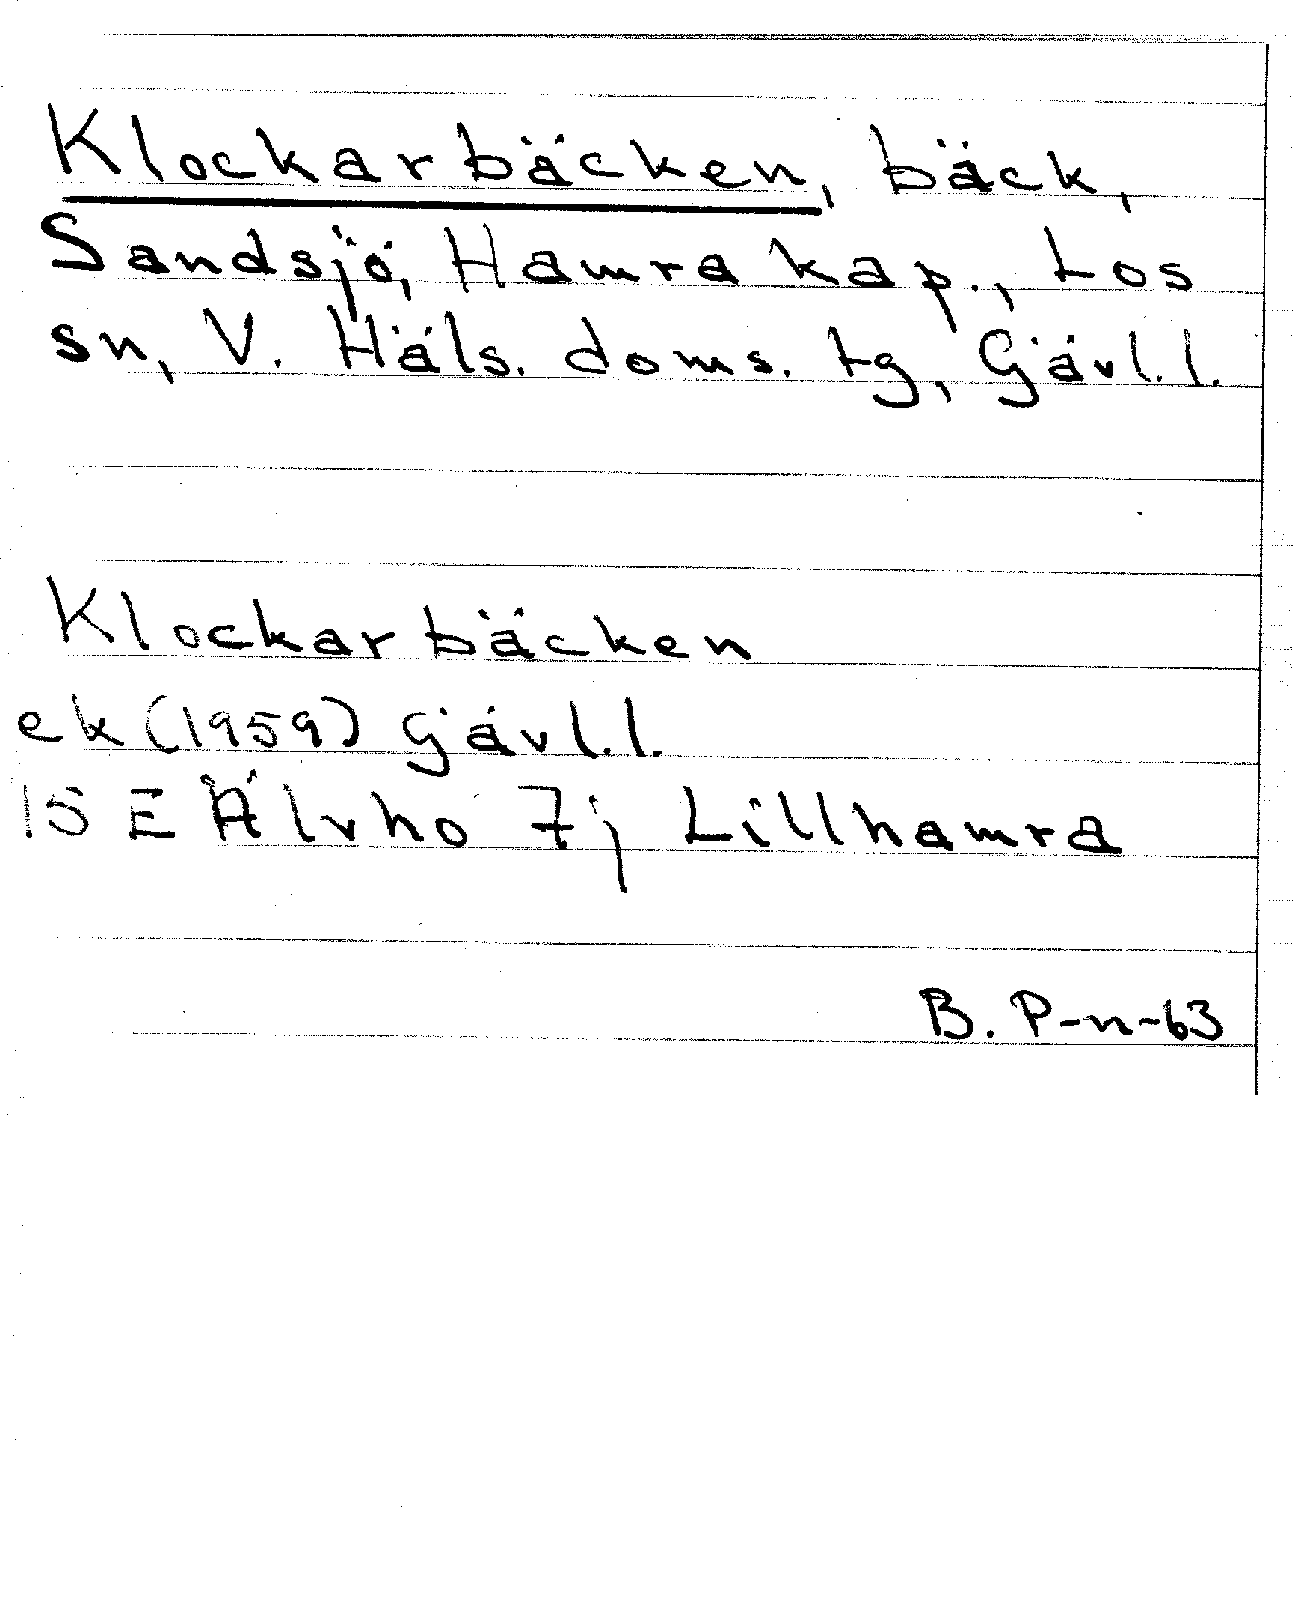 Klockarbäcken, bäck,
Sandsjö, Hamra kap., Los
sn, V. Häls. doms. tg, Gävl.l.
Klockarbäcken
ek (1959) Gävl.l.
15 E Älvho 7j Lillhamra
B. P-n-63